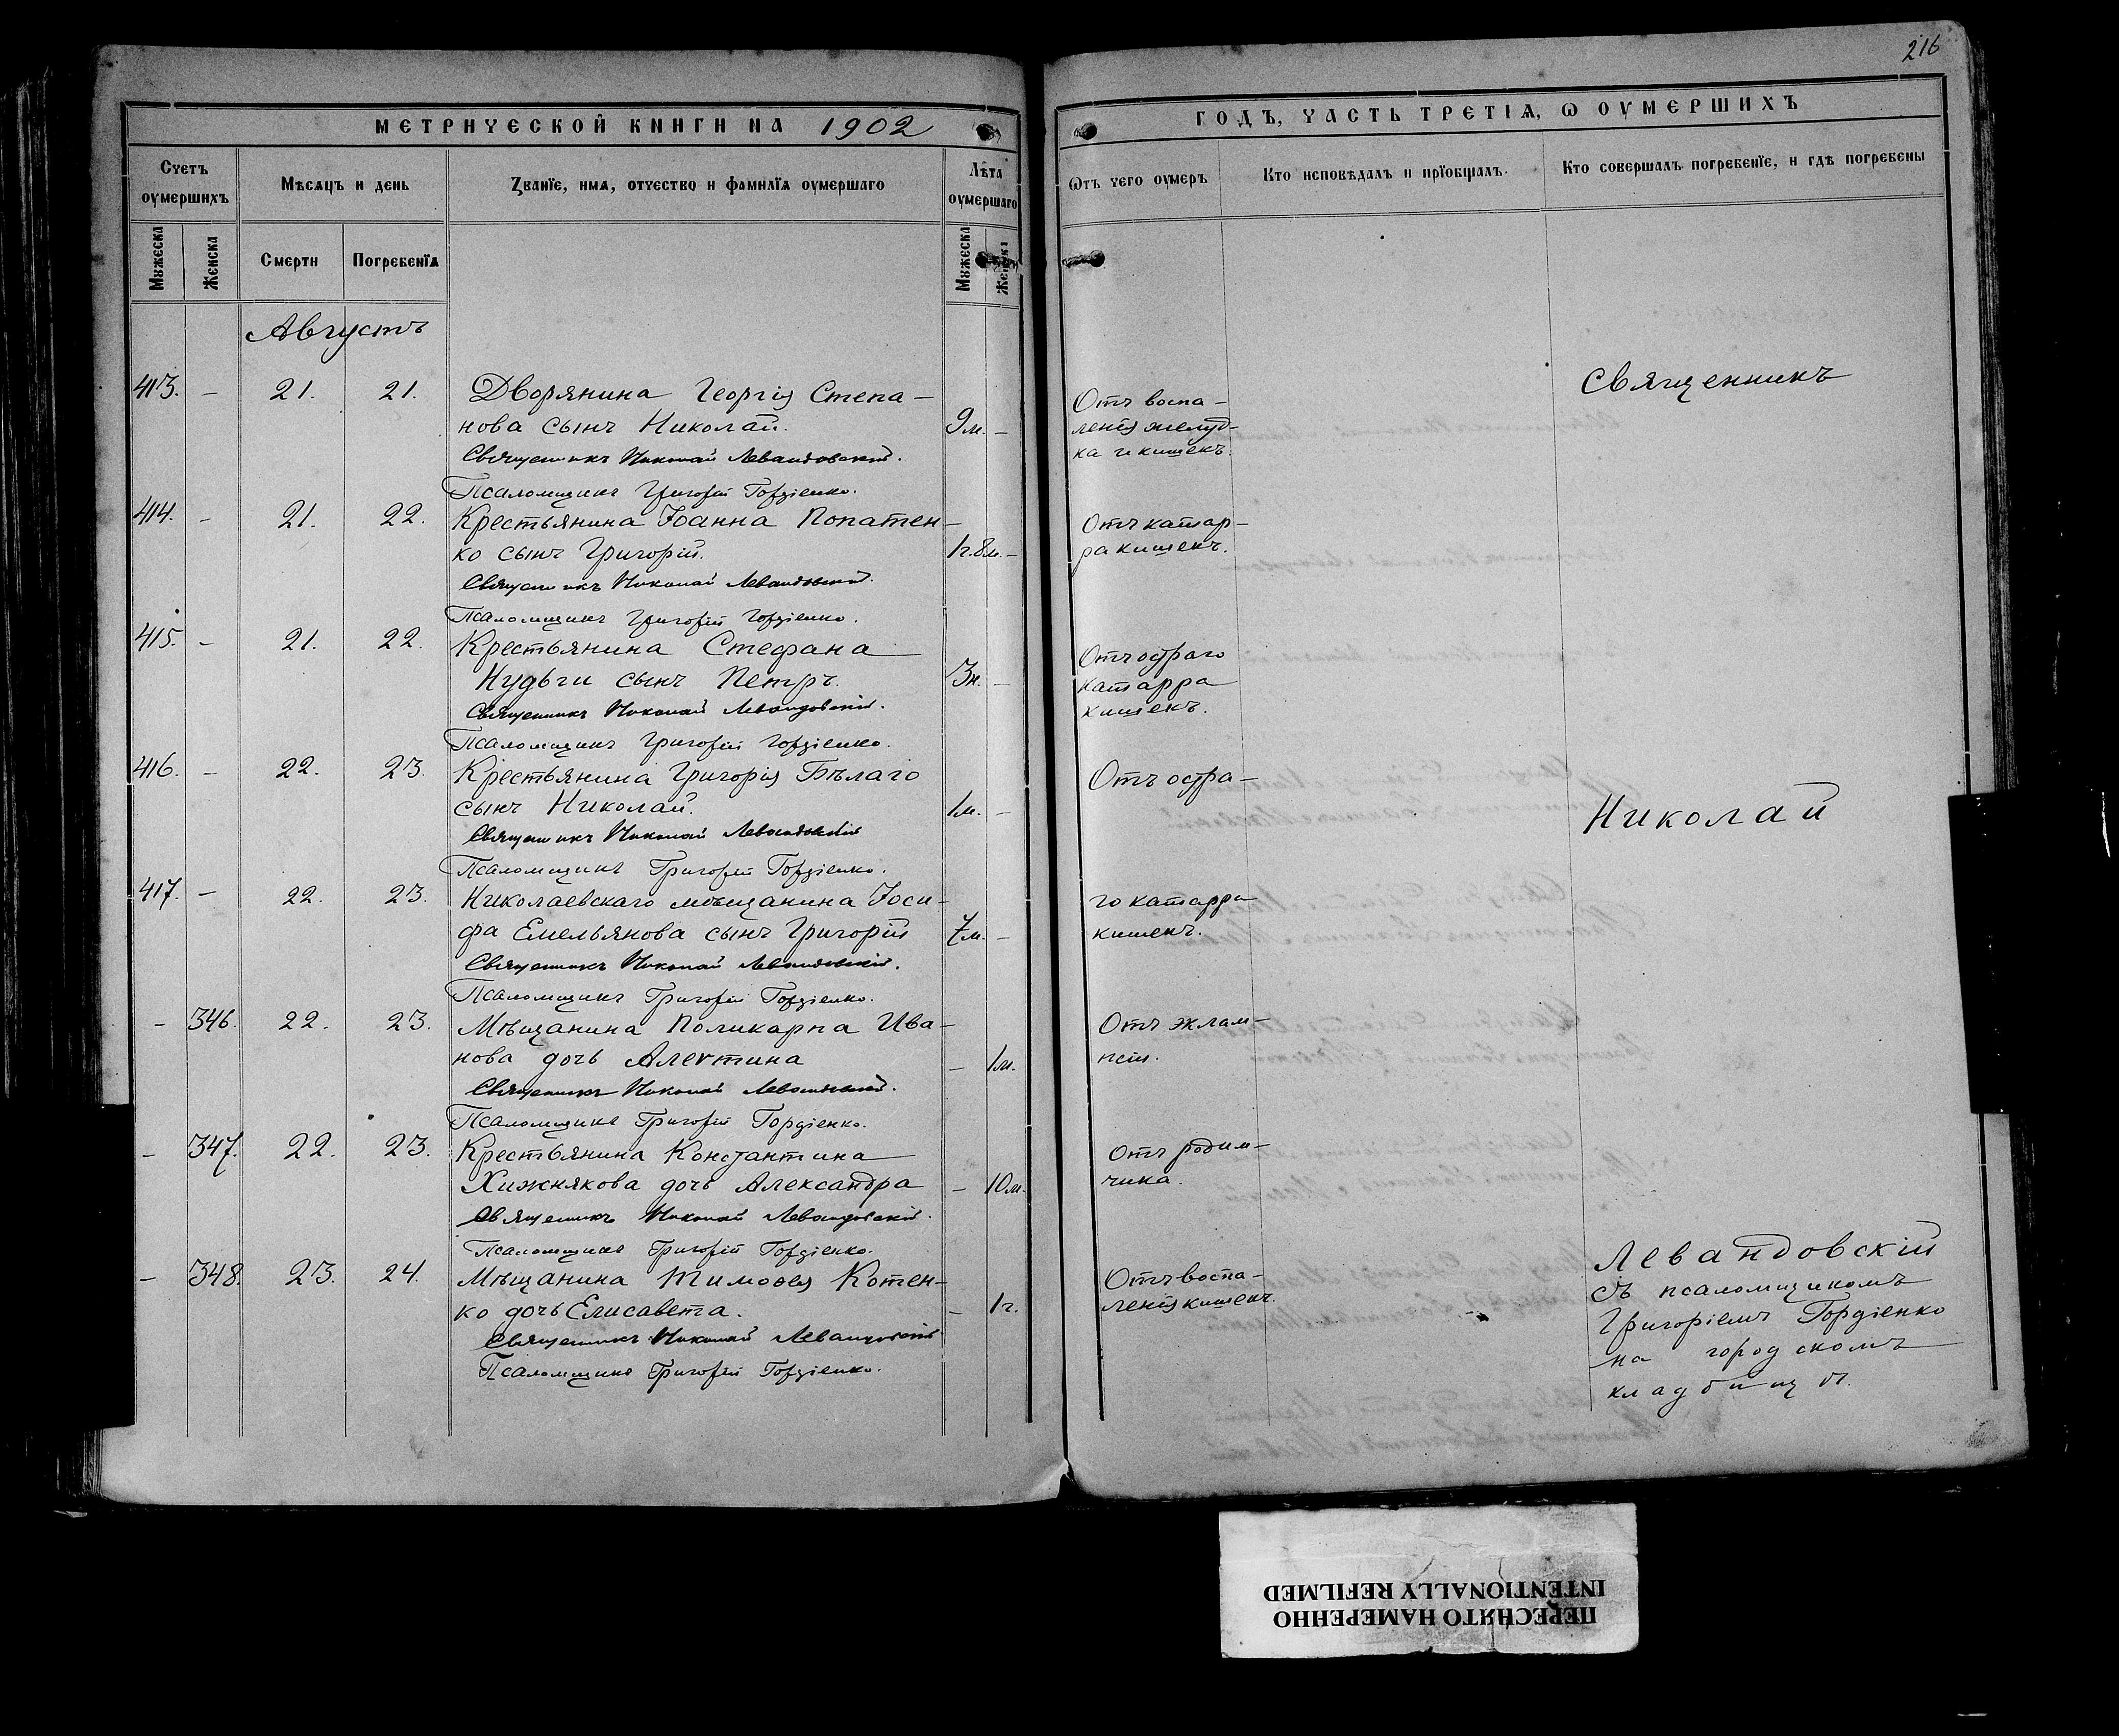 216
МЕТРИЧЕСКОЙ КНИГИ НА 1902
ГОДЪ, ЧАСТЬ ТРЕТІѦ, Ѡ ОУМЕРШИХЪ
Счетъ оумершихъ
Мѣсяцъ и день
Званїе, имѧ, отчество и фамилїѧ оумершаго
Лѣта оумершаго
Ѿтъ чего оумеръ
Кто исповѣдалъ и прїобщалъ.
Кто совершалъ погребенїе, и гдѣ погребены
Мужеска
Женска
Смерти
Погребенїѧ
Мужеска
Женска
Августъ
413. - 21. 21. Дворянина Георгія Степа-
нова сынъ Николай. 9м. -
Священникъ Николай Левандовскій.
Псаломщикъ Григорій Гордіенко.
Отъ воспа-
ленія желуд-
ка и кишекъ.
414. - 21. 22. Крестьянина Іоанна Лопатен-
ко сынъ Григорій. 1г.8м. -
Священникъ Николай Левандовскій.
Псаломщикъ Григорій Гордіенко.
Отъ катар-
ра кишекъ.
415. - 21. 22. Крестьянина Стефана
Нудьги сынъ Петръ. 3н. -
Священникъ Николай Левандовскій.
Псаломщикъ Григорій Гордіенко.
Отъ остраго
катарра
кишекъ.
416. - 22. 23. Крестьянина Григорія Бѣлаго
сынъ Николай. 1м. -
Священникъ Николай Левандовскій
Псаломщикъ Григорій Гордіенко.
Отъ остра-
417. - 22. 23. Николаевскаго мѣщанина Іоси-
фа Емельянова сынъ Григорій 7м. -
Священникъ Николай Левандовскій.
Псаломщикъ Григорій Гордіенко.
го катарра
кишекъ.
- 346. 22. 23. Мѣщанина Поликарпа Ива-
нова дочь Алевтина - 1м.
Священникъ Николай Левандовскій.
Псаломщикъ Григорій Гордіенко.
Отъ эклам-
псіи.
- 347. 22. 23. Крестьянина Константина
Хижнякова дочь Александра - 10м.
Священникъ Николай Левандовскій.
Псаломщикъ Григорій Гордіенко.
Отъ родим-
чика.
- 348. 23. 24. Мѣщанина Тимоѳея Котен-
ко дочь Елисавета. - 1г.
Священникъ Николай Левандовскій
Псаломщикъ Григорій Гордіенко.
Отъ воспа-
ленія кишекъ.
Священникъ
Николай
Левандовскій
съ псаломщикомъ
Григоріемъ Гордіенко
на городскомъ
кладбищѣ.
ПЕРЕСНЯТО НАМЕРЕННО
INTENTIONALLY REFILMED